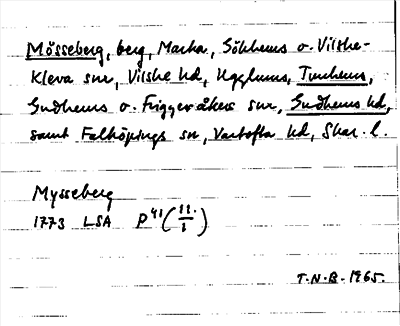 Mösseberg, berg, Marka, Sökhems o. Vilske-
Kleva snr, Vilske hd, Ugglums, Torbjörns,
Gudhems o. Friggeråkers snr, Gudhems hd,
samt Falköpings sn, Vartofta hd, Skar. l.
Mysseberg
1773 LSA P41 (11./1)
T.N.B. 1965.